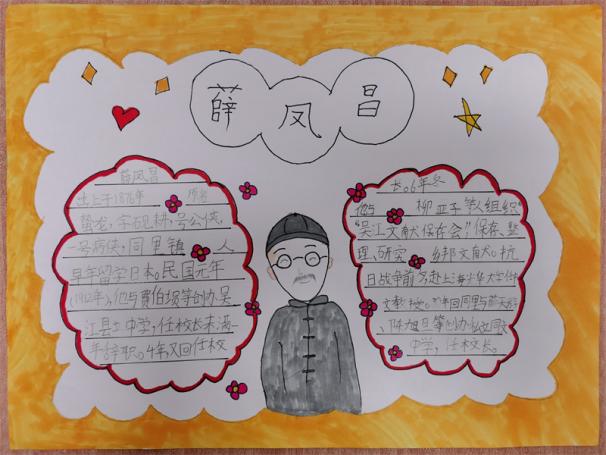 薛凤昌
薛凤昌
出生于1876年 原名
蛰龙,字砚耕,号公侠,
一号病侠,同里镇 人,
早年留学日本。民国元年
(1912年),他与费伯埙等创办吴
江县立中学,任校长未满
年辞职。4年又回任校
长。6年冬
柳亚子等人组织
"吴江文献保存会",保存、整
理、研究 乡邦文献。抗
日战争前夕赴上海光华大学任
文教授。 年回同里与
、陈旭旦等创办私立同文
中学,任校长。